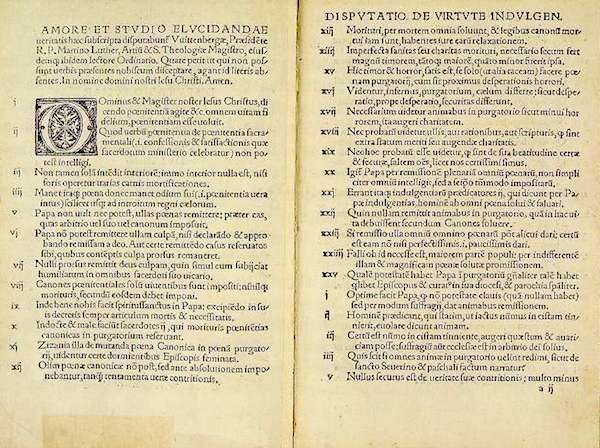 AMORE ET STVDIO ELVCIDANDAE
ueritatis hæc subscripta disputabunť Vuittenbergæ, Præsidēte
R. P. Martino Luther, Artiū & S. Theologiæ Magistro, eius-
demq; ibidem lectore Ordinario. Quare petit ut qui non pos-
sunt uerbis præsentes nobiscum disceptare, agant id literis ab-
sentes. In nomine domini nostri Iesu Christi. Amen.
i Dominus & Magister noster Iesus Christus, di-
cendo pœnitentiā agite &c. omnem uitam fi-
delium, pœnitentiam esse uoluit.
ij Quod uerbū pœnitentia de pœnitentia sacra-
mentali (.i. confessionis & satisfactionis quæ
sacerdotum ministerio celebratur) non po-
test intelligi.
iij Non tamen solā intēdit interiorē: immo interior nulla est, nisi
foris operetur uarias carnis mortificationes.
iiij Manet itaq; pœna donec manet odium sui (.i. pœnitentia uera
intus) scilicet usq; ad introitum regni cælorum.
v Papa non uult nec potest, ullas pœnas remittere: præter eas,
quas arbitrio uel suo uel canonum imposuit.
vj Papa nō potest remittere ullam culpā, nisi declarādo & appro-
bando remissam a deo. Aut certe remittēdo casus reseruatos
sibi, quibus contēptis culpa prorsus remaneret.
vij Nulli prorsus remittit deus culpam, quin simul eum subijciat
humiliatum in omnibus sacerdoti suo uicario.
viij Canones pœnitentiales solū uiuentibus sunt impositi: nihilq;
morituris, secundū eosdem debet imponi.
ix Inde bene nobis facit spiritussanctus in Papa: excipiēdo in su-
is decretis semper articulum mortis & necessitatis.
x Indocte & male faciūt sacerdotes ij, qui morituris pœnitētias
canonicas in purgatorium reseruant.
xj Zizania illa de mutanda pœna Canonica in pœnā purgato-
rij, uidentur certe dormientibus Episcopis seminata.
xij Olim pœnæ canonicæ nō post, sed ante absolutionem impo-
nebantur, tanq̄ tentamenta ueræ contritionis.
DISPVTATIO DE VIRTVTE INDVLGEN.
xiij Morituri, per mortem omnia soluunt, & legibus canonū mor-
tui iam sunt, habentes iure earū relaxationem.
xiiij Imperfecta sanitas seu charitas morituri, necessario secum fert
magnū timorem, tātoq; maiorē, quāto minor fuerit ipsa.
xv Hic timor & horror, satis est, se solo (ut alia taceam) facere pœ-
nam purgatorij, cum sit proximus desperationis horrori.
xvj Videntur, infernus, purgatorium, cælum differre: sicut despe-
ratio, prope desperatio, securitas differunt.
xvij Necessarium uidetur animabus in purgatorio sicut minui hor-
rorem, ita augeri charitatem.
xviij Nec probatū uidetur ullis, aut rationibus, aut scripturis, q̃ sint
extra statum meriti seu augendæ charitatis.
xix Nec hoc probatū esse uidetur, q̃ sint de sua beatitudine certæ
& securæ, saltem oēs, licet nos certissimi simus.
xx Igit̃ Papa per remissionē plenariā omniū pœnarū, non simpli
citer omniū intelligit, sed a seipso tātūmodo impositarū.
xxj Errant itaq; indulgentiarū prædicatores ij, qui dicunt per Pa-
pæ indulgentias, hominē ab omni pœna solui & saluari.
xxij Quin nullam remittit animabus in purgatorio, quā in hac ui-
ta debuissent secundum Canones soluere.
xxiij Si remissio ulla omniū omnino pœnarū pōt alicui dari; certū
est eam nō nisi perfectissimis, .i. paucissimis dari.
xxiiij Falli ob id necesse est, maiorem partē populi: per indifferentē
illam & magnificam pœnæ solutæ promissionem.
xxv Qualē potestatē habet Papa ī purgatoriū gñaliter talē habet
quilibet Episcopus & curat̃ in sua diocesi, & parochia spāliter.
i Optime facit Papa, q̃ nō potestate clauis (quā nullam habet)
sed per modum suffragij, dat animabus remissionem.
ij Hominē prædicant, qui statim, ut iactus nūmus in cistam tin-
nierit, euolare dicunt animam.
iij Certū est nūmo in cistam tinniente, augeri quæstum & auari-
ciam posse; suffragiū aūt ecclesiæ est in arbitrio dei solius.
iiij Quis scit si omnes animæ in purgatorio uelint redimi, sicut de
sancto Seuerino & paschali factum narratur.
v Nullus securus est de ueritate suæ contritionis; multo minus
a ij